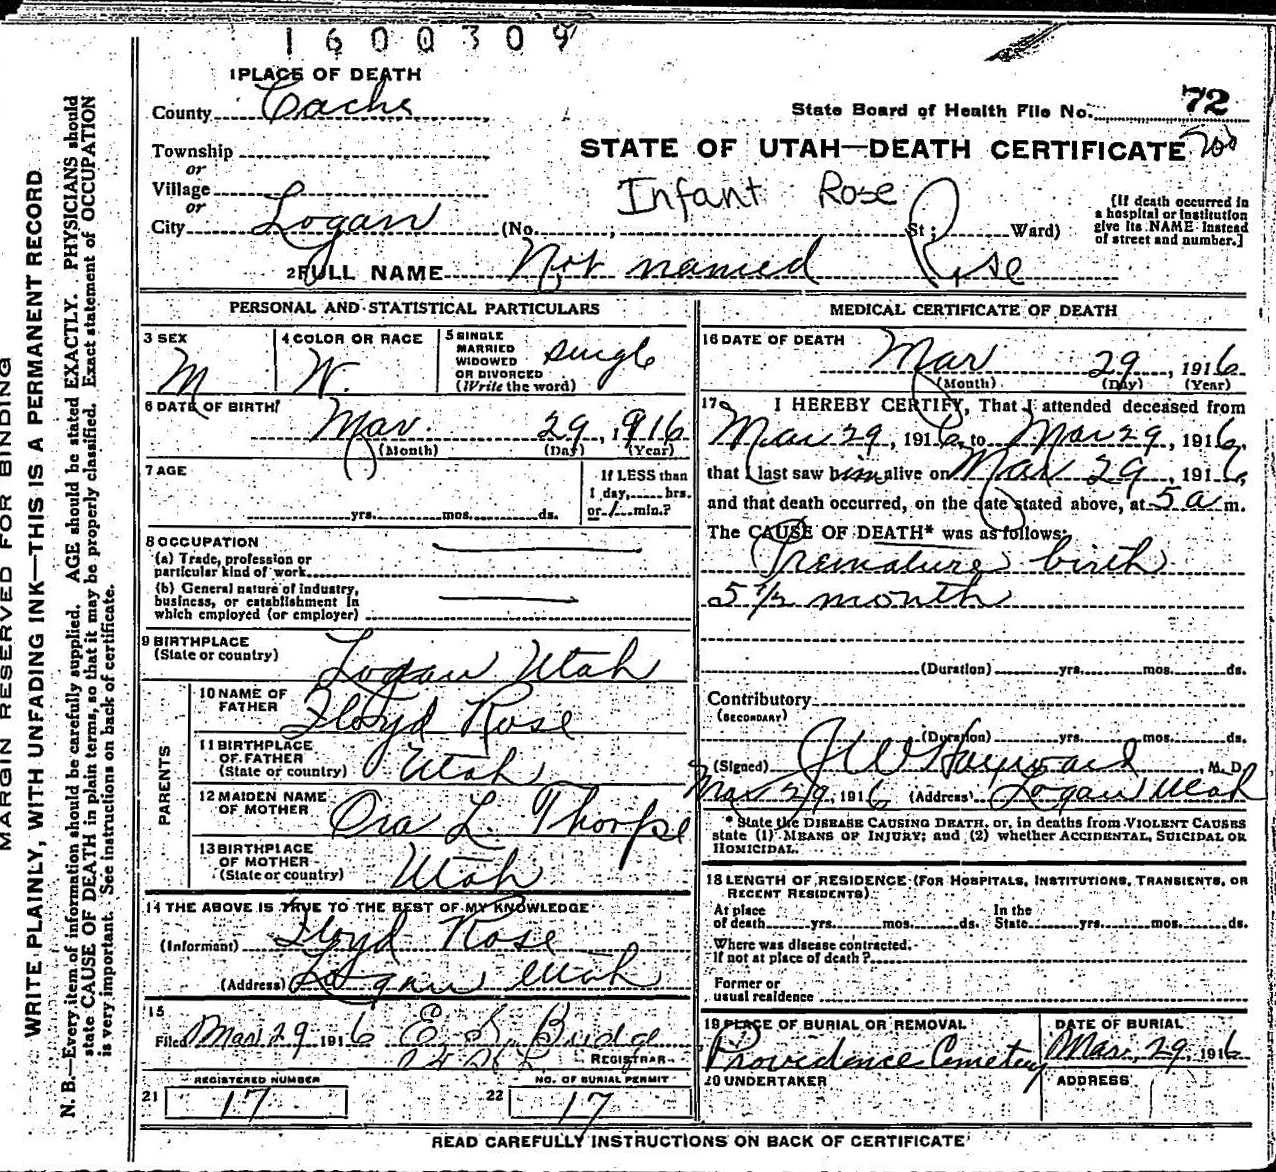 1600309
1 PLACE OF DEATH
County Cache
State Board of Health File No. 72
Township
or
STATE OF UTAH—DEATH CERTIFICATE
Village
or
Infant Rose
City Logan (No. ; St; Ward)
[If death occurred in
a hospital or institution
give its NAME instead
of street and number.]
2 FULL NAME Not named Rose
PERSONAL AND STATISTICAL PARTICULARS
3 SEX
M
4 COLOR OR RACE
W.
5 SINGLE
MARRIED
WIDOWED
OR DIVORCED
(Write the word)
Single
6 DATE OF BIRTH
Mar. 29, 1916
(Month) (Day) (Year)
7 AGE
yrs. mos. ds.
If LESS than
1 day, hrs.
or 1 min.?
8 OCCUPATION
(a) Trade, profession or
particular kind of work
(b) General nature of industry,
business, or establishment in
which employed (or employer)
9 BIRTHPLACE
(State or country)
Logan Utah
PARENTS
10 NAME OF
FATHER
Floyd Rose
11 BIRTHPLACE
OF FATHER
(State or country)
Utah
12 MAIDEN NAME
OF MOTHER
Ora L. Thorpe
13 BIRTHPLACE
OF MOTHER
(State or country)
Utah
14 THE ABOVE IS TRUE TO THE BEST OF MY KNOWLEDGE
(Informant) Floyd Rose
(Address) Logan Utah
15
Filed Mar. 29 1916 E. S. Budge
REGISTRAR
REGISTERED NUMBER
21 17
NO. OF BURIAL PERMIT
22 17
MEDICAL CERTIFICATE OF DEATH
16 DATE OF DEATH
Mar 29, 1916
(Month) (Day) (Year)
17 I HEREBY CERTIFY, That I attended deceased from
Mar 29, 1916, to Mar 29, 1916,
that I last saw him alive on Mar 29, 1916,
and that death occurred, on the date stated above, at 5 a m.
The CAUSE OF DEATH* was as follows:
Premature birth
5 1/2 month
(Duration) yrs. mos. ds.
Contributory
(SECONDARY)
(Duration) yrs. mos. ds.
(Signed) J W Hayward, M. D.
Mar 29, 1916 (Address) Logan Utah
* State the DISEASE CAUSING DEATH, or, in deaths from VIOLENT CAUSES
state (1) MEANS OF INJURY; and (2) whether ACCIDENTAL, SUICIDAL OR
HOMICIDAL.
18 LENGTH OF RESIDENCE (FOR HOSPITALS, INSTITUTIONS, TRANSIENTS, OR
RECENT RESIDENTS)
At place
of death yrs. mos. ds.
In the
State yrs. mos. ds.
Where was disease contracted,
If not at place of death?
Former or
usual residence
19 PLACE OF BURIAL OR REMOVAL
Providence Cemetery
DATE OF BURIAL
Mar. 29, 1916
20 UNDERTAKER
ADDRESS
READ CAREFULLY INSTRUCTIONS ON BACK OF CERTIFICATE
MARGIN RESERVED FOR BINDING
WRITE PLAINLY, WITH UNFADING INK—THIS IS A PERMANENT RECORD
N. B.—Every item of information should be carefully supplied. AGE should be stated EXACTLY. PHYSICIANS should
state CAUSE OF DEATH in plain terms, so that it may be properly classified. Exact statement of OCCUPATION
is very important. See instructions on back of certificate.